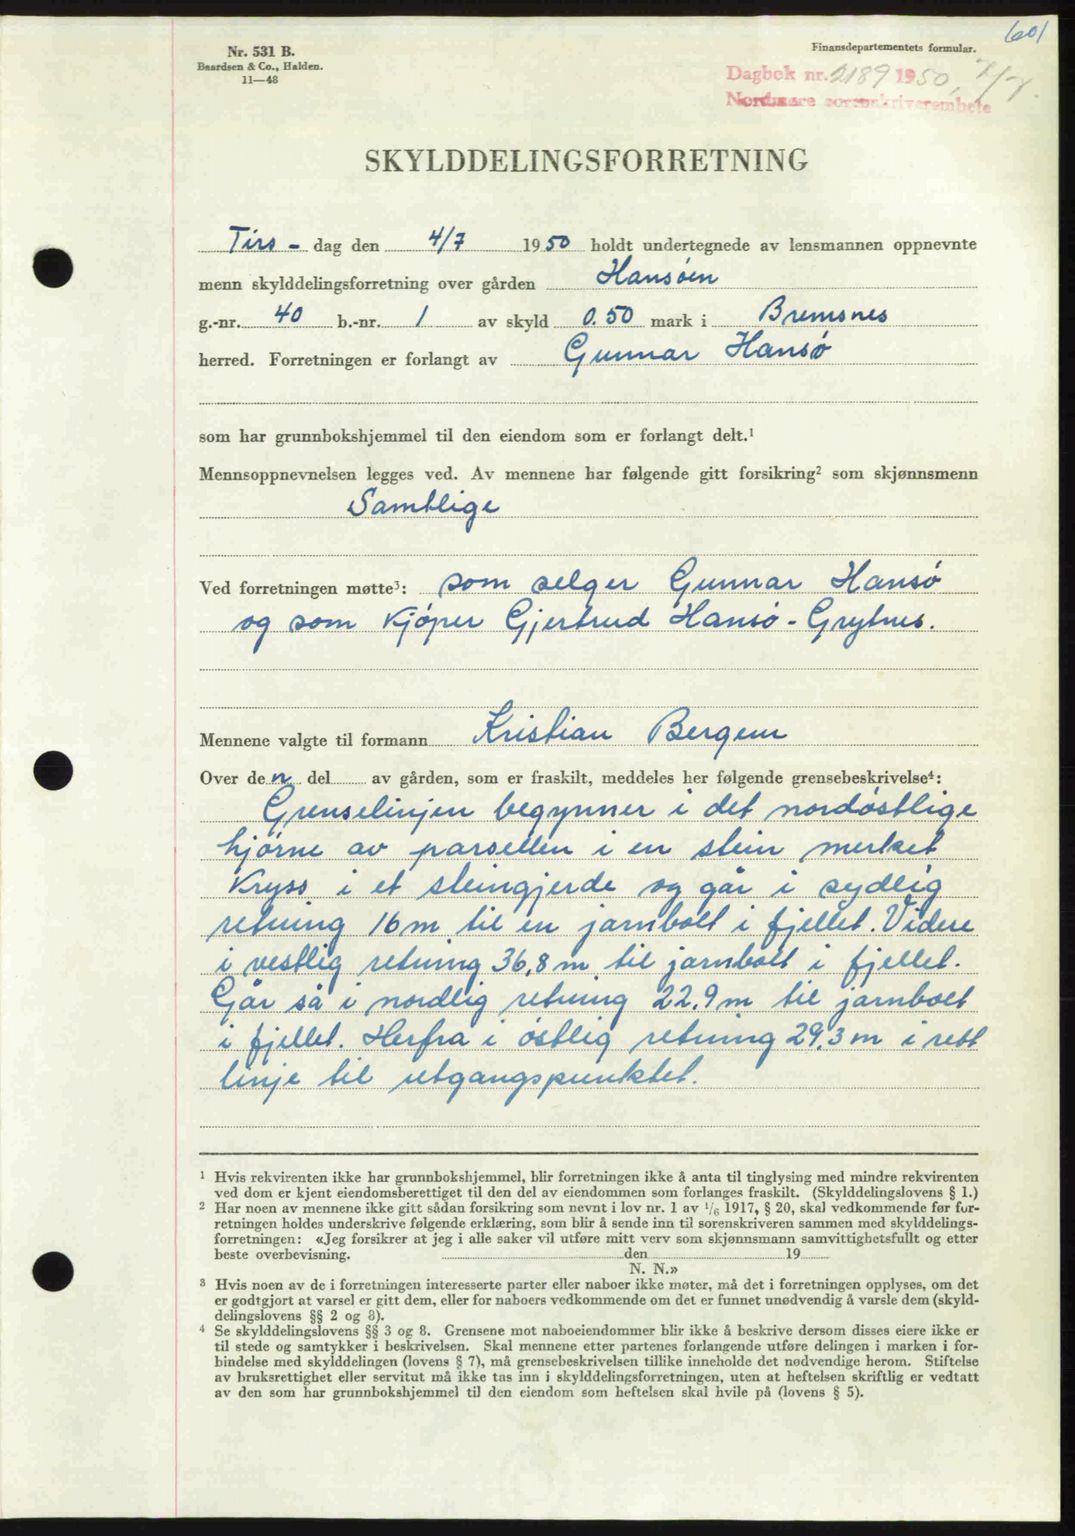 601
Nr. 531 B.
Baardsen & Co., Halden.
11—48
Finansdepartementets formular.
Dagbok nr. 2189 1950, 7/7.
Nordmøre sorenskriverembete
SKYLDDELINGSFORRETNING
Tirs - dag den 4/7 1950 holdt undertegnede av lensmannen oppnevnte
menn skylddelingsforretning over gården Hansøen
g.-nr. 40 b.-nr. 1 av skyld 0.50 mark i Bremsnes
herred. Forretningen er forlangt av Gunnar Hansø
som har grunnbokshjemmel til den eiendom som er forlangt delt.¹
Mennsoppnevnelsen legges ved. Av mennene har følgende gitt forsikring² som skjønnsmenn
Samtlige
Ved forretningen møtte³: som selger Gunnar Hansø
og som kjøper Gjertrud Hansø - Grytnes.
Mennene valgte til formann Kristian Bergem
Over den del av gården, som er fraskilt, meddeles her følgende grensebeskrivelse⁴:
Grenselinjen begynner i det nordøstlige
hjørne av parsellen i en stein merket
Kryss i et steingjerde og går i sydlig
retning 16 m til en jarnbolt i fjellet. Videre
i vestlig retning 36,8 m til jarnbolt i fjellet.
Går så i nordlig retning 22,9 m til jarnbolt
i fjellet. Herfra i østlig retning 29,3 m i rett
linje til utgangspunktet.
¹ Hvis rekvirenten ikke har grunnbokshjemmel, blir forretningen ikke å anta til tinglysing med mindre rekvirenten
ved dom er kjent eiendomsberettiget til den del av eiendommen som forlanges fraskilt. (Skylddelingslovens § 1.)
² Har noen av mennene ikke gitt sådan forsikring som nevnt i lov nr. 1 av ¹/₆ 1917, § 20, skal vedkommende før for-
retningen holdes underskrive følgende erklæring, som blir å sende inn til sorenskriveren sammen med skylddelings-
forretningen: «Jeg forsikrer at jeg i alle saker vil utføre mitt verv som skjønnsmann samvittighetsfullt og etter
beste overbevisning. den 19
N. N.»
³ Hvis noen av de i forretningen interesserte parter eller naboer ikke møter, må det i forretningen opplyses, om det
er godtgjort at varsel er gitt dem, eller for naboers vedkommende om det er funnet unødvendig å varsle dem (skyld-
delingslovens §§ 2 og 3).
⁴ Se skylddelingslovens §§ 3 og 8. Grensene mot naboeiendommer blir ikke å beskrive dersom disses eiere ikke er
til stede og samtykker i beskrivelsen. Skal mennene etter partenes forlangende utføre delingen i marken i for-
bindelse med skylddelingen (lovens § 7), må grensebeskrivelsen tillike inneholde det nødvendige herom. Stiftelse
av bruksrettighet eller servitut må ikke tas inn i skylddelingsforretningen, uten at heftelsen skriftlig er vedtatt
av den som har grunnbokshjemmel til den eiendom som heftelsen skal hvile på (lovens § 5).